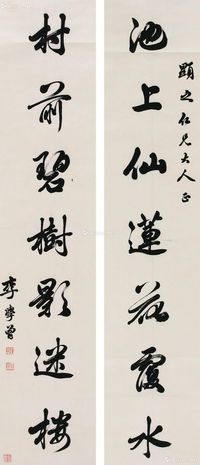 顯之仁兄大人正
池上仙蓮花覆水
村前碧樹影迷楼
李學曾